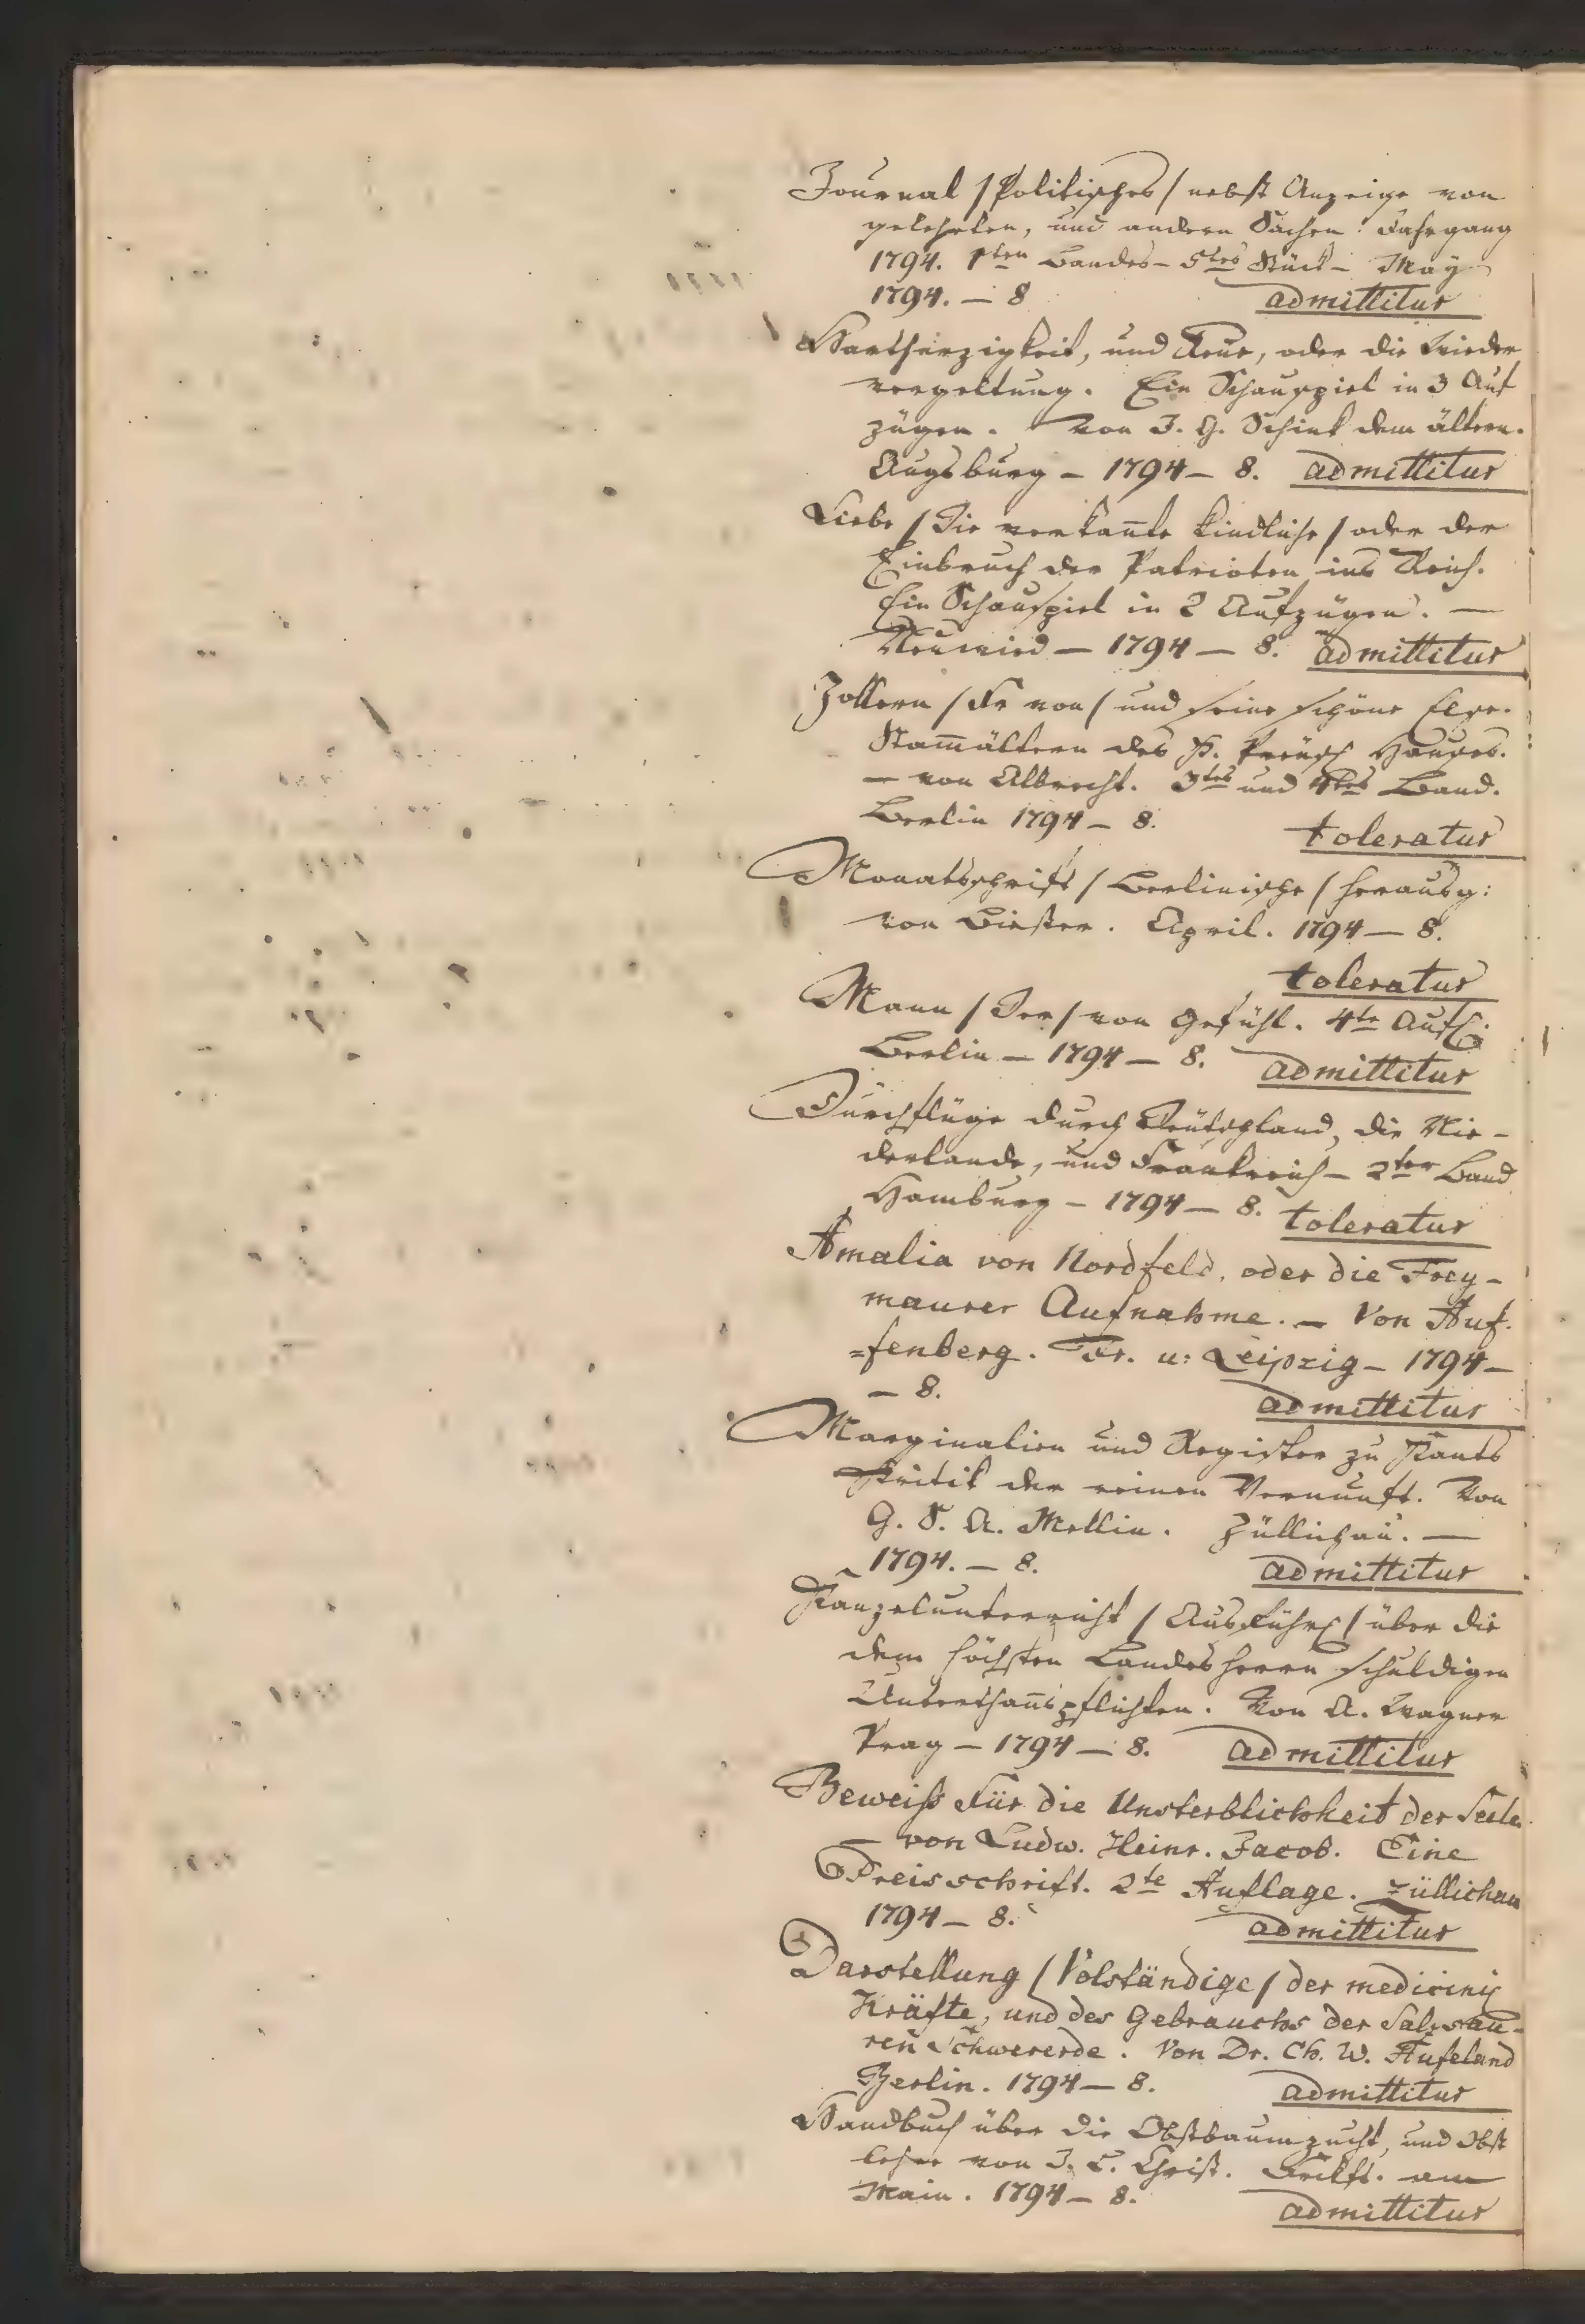 Journal /Politisches/ nebst Anzeige von
gelehrten, und andern Sachen. Jahrgang
1794. 1ten Bandes – 5tes Stück – May
1794. – 8 admittitur
Hartherzigkeit, und Reue, oder die Wieder
vergeltung. Ein Schauspiel in 3 Auf
zügen. Von J. G. Schink dem ältern.
Augsburg – 1794 – 8. admittitur
Liebe /Die verkañte kindliche/ oder der
Einbruch der Patrioten ins Reich.
Ein Schauspiel in 2 Aufzügen. —
Neuwied – 1794 – 8. admittitur
Zollern /Fr von/ und seine schöne Else.
Stam̄ältern des K. Preüsch Hauses.
— von Albrecht. 3tes und 4tes Band.
Berlin 1794 – 8. toleratur
Monatsschrift /Berlinische/ herausg:
von Biester. April. 1794 – 8.
toleratur
Mann /Der/ von Gefühl. 4te Aufl.
Berlin – 1794 – 8. admittitur
Durchflüge durch Deütschland, die Nie-
derlande, und Frankreich – 2ter Band
Hamburg – 1794 – 8. toleratur
Amalia von Nordfeld, oder die Frey-
maurer Aufnahme. – Von Auf.
=fenberg. Fr. u: Leipzig – 1794 –
– 8. admittitur
Marginalien und Register zu Kants
Kritik der reinen Vernunft. Von
G. S. A. Mellin. Züllichau. —
1794. – 8. admittitur
Kanzelunterricht /Ausführl/ über die
dem höchsten Landesherrn schuldigen
Unterthañspflichten. Von A. Wagner
Prag – 1794 – 8. admittitur
Beweiß für die Unsterblichkeit der Seele
– von Ludw. Heinr. Jacob. Eine
Preisschrift. 2te Auflage. Züllichau
1794 – 8. admittitur
Darstellung /Volständige/ der medicinisch
Kräfte, und des Gebrauchs der Salzsau-
ren Schwererde. Von Dr. Ch. W. Hufeland
Berlin. 1794 – 8. admittitur
Handbuch über die Obstbaumzucht, und Obst
lehre von J. L. Christ. Frkft. am
Main. 1794 – 8. admittitur